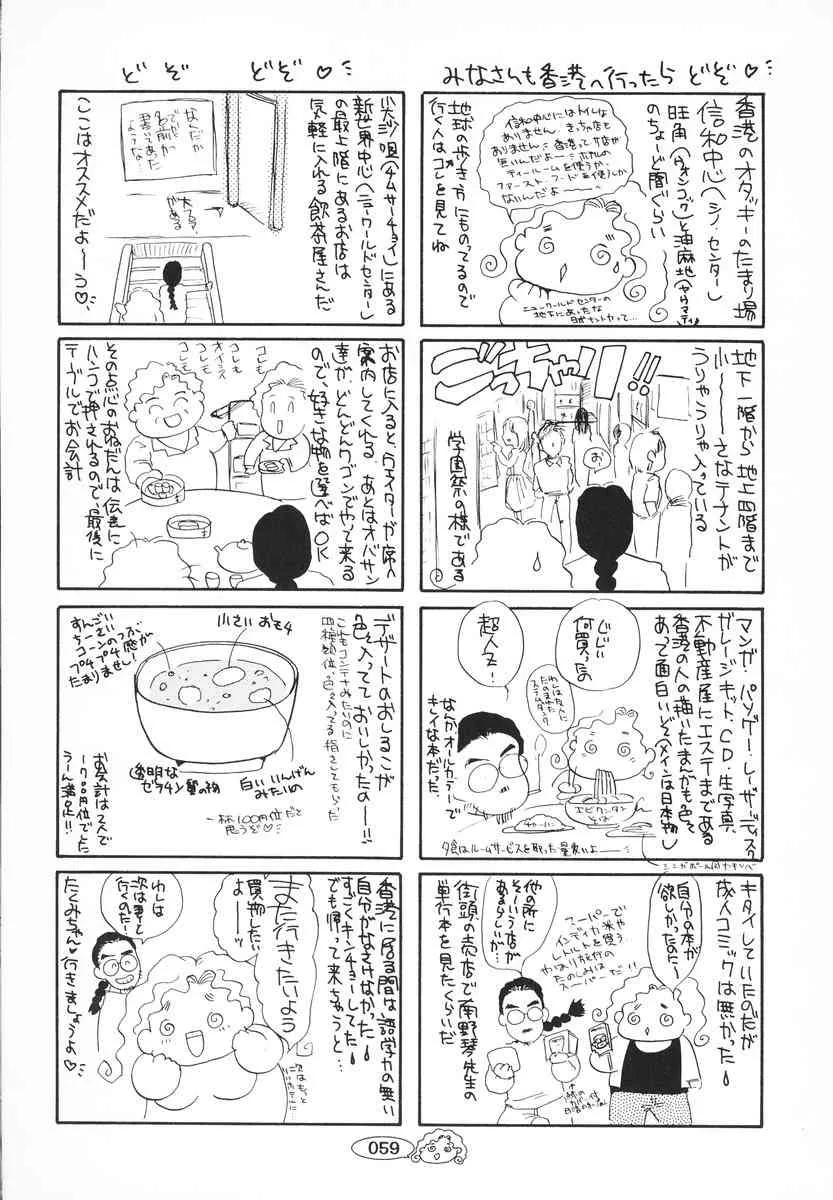 みなさんも香港へ行ったら どぞ♡
香港のオタッキーのたまり場
信和中心(シノ・センター)
旺角(ウォンコック)と油麻地(ヤウマティ)
のちょーど間ぐらい
信和中心にはトイレは
ありません
ティールームを使うか、
ファーストフードを使うんか
ないんだよ
地球の歩き方にものってるので
行く人はコレを見てね
ニューワールドセンターの
地下にあったな
地下一階から地上四階まで
小〜〜さなテナントが
うりゃうりゃ入っている
ごっちゃり!!
お
学園祭の様である
マンガ・パソゲー・レーザーディスク
ガレージキット・CD・生写真、
不動産屋にエステまである
香港の人の描いたまんがも色々
あって面白いぞ(メインは日本物)
じじい
何買ったの
超人Z!
わしは友人に
たのまれた
なんかオールカラーで
キレイな本だった。
エビワンタン
そば
夕食はルームサービスを取った
キタイしていたのだが
成人コミックは無かった
自分の本が
欲しかったのに〜
他の所に
そーいう店が
あるらしいが…
スーパーで
インディカ米や
レトルトを使う
やはり旅行の
たのしみは
スーパーだ!!
街頭の売店で南野琴先生の
単行本を見たくらいだ
どぞ どぞ♡
尖沙咀(チムサーチョイ)にある
新世界中心(ニューワールドセンター)
の最上階にあるお店は
気軽に入れる飲茶屋さんだ
なんだか
でっかく
名前が
書いてあった
ような
大フスマ
がある
ここはオススメだよ〜う♡
お店に入るとウェイターが席へ
案内してくれる。あとはオバサン
達がどんどんワゴンでやって来る
ので、好きな物を選べばOK
コレも
オイシイ
コレも
コレも
その点心のおねだんは伝票に
ハンコで押されるので最後に
テーブルでお会計
デザートのおしるこが
色々入ってておいしかったのー!!
これもコンテナみたいのに
四種類位色々入ってる 指さしてもらった
小さいおモチ
すんごい
ちーさい
コーンのつぶ
プチプチ感が
たまりません!
透明な
ゼラチン質の物
白いいんげん
みたいの
一杯100円位だと
思うぞ♡
お会計は2人で
1700円位でした
うーん満足!!
香港に居る間は語学力の無い
自分がなさけなかった
すごくキンチョーしてた
でも帰って来ちゃうと…
また行きたいよう
買物したい
よー
次はもっと
わしは
次は妻と
行くのだー!
たくみちゃん♡行きましょうよ♡
059